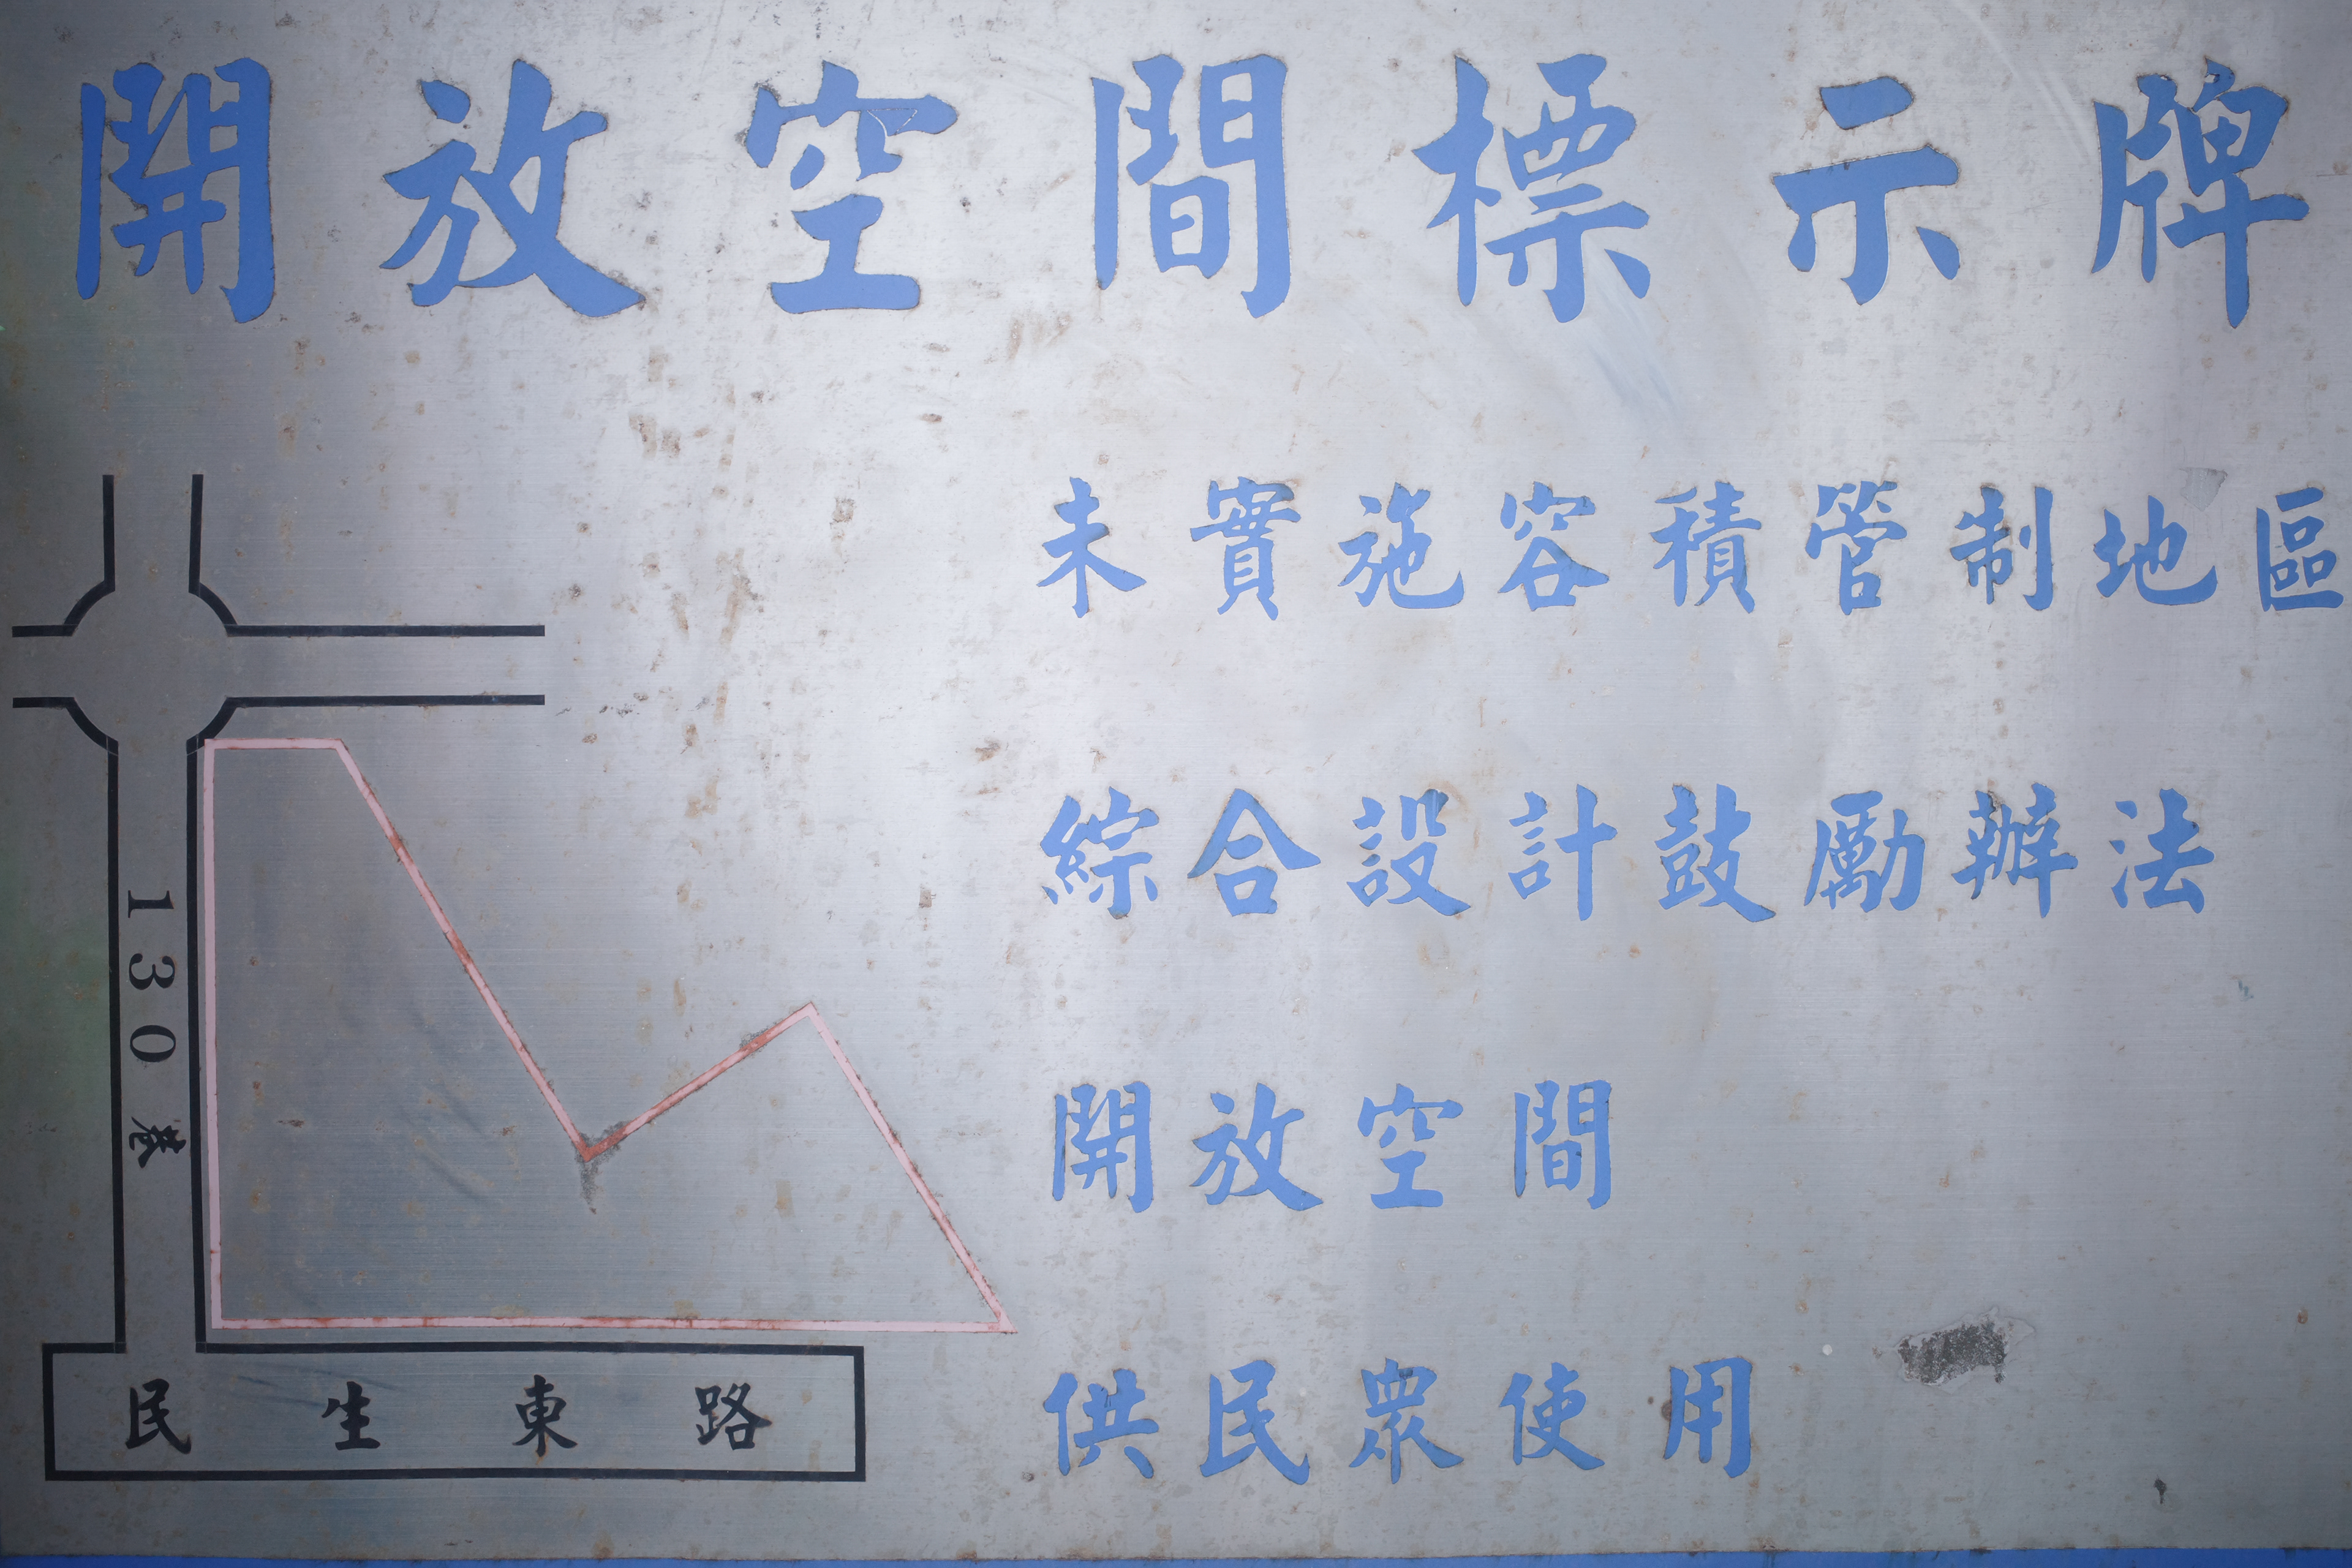 開放空間標示牌
未實施容積管制地區
綜合設計鼓勵辦法
開放空間
供民眾使用
130巷
民生東路